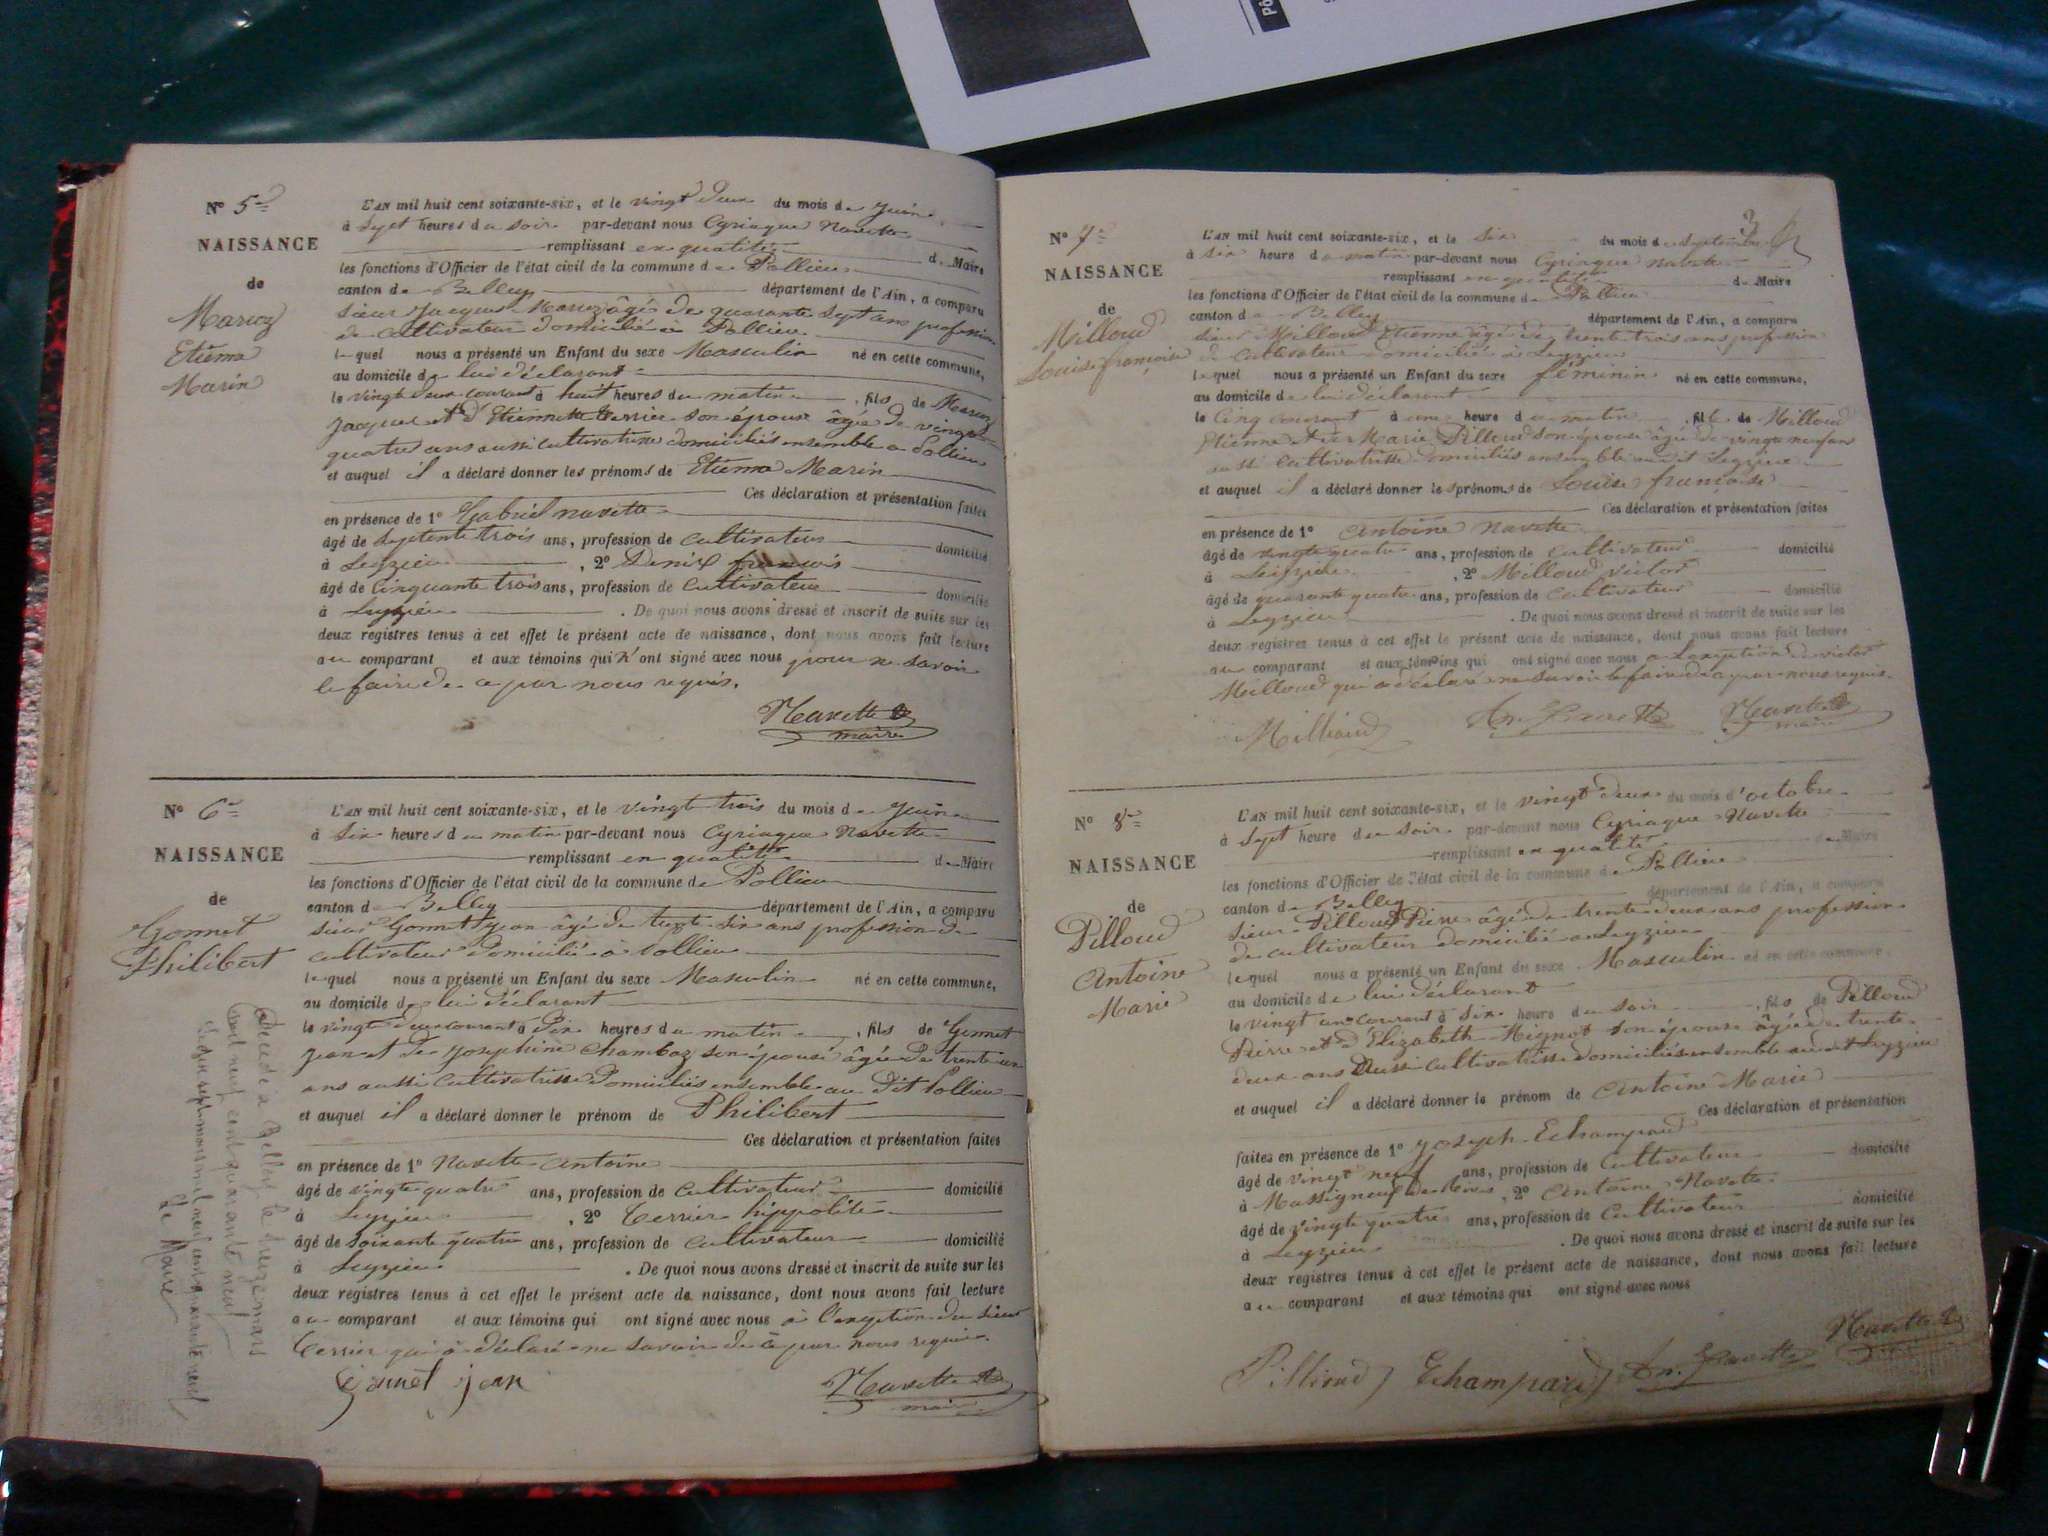 Nº 5
NAISSANCE
de
Marin
Etiéma
Marin
L'AN mil huit cent soixante-six, et le vingt deux du mois de Juin
à Sept heures du soir par-devant nous Cyriaque Navette
remplissant en qualité de Maire
les fonctions d'Officier de l'état civil de la commune de Pollieu
canton de Belley département de l'Ain, a comparu
sieur Jacques âgé de quarante sept ans profession
de cultivateur domicilié à Pollieu
lequel nous a présenté un Enfant du sexe Masculin né en cette commune,
au domicile de lui déclarant
le vingt deux courant à huit heures du matin, fils de
Jacques et d'Etiennette Terrier son épouse âgée de vingt
quatre ans aussi cultivatrice domiciliés ensemble à Pollieu
et auquel il a déclaré donner les prénoms de Etiéma Marin
Ces déclaration et présentation faites
en présence de 1º Gabriel Navette
âgé de septente trois ans, profession de cultivateur domicilié
à Leyzieu, 2º Denis françois
âgé de cinquante trois ans, profession de cultivateur domicilié
à Leyzieu. De quoi nous avons dressé et inscrit de suite sur les
deux registres tenus à cet effet le présent acte de naissance, dont nous avons fait lecture
au comparant et aux témoins qui n'ont signé avec nous pour ne savoir
le faire de ce par nous requis.
Navette
maire
Nº 6
NAISSANCE
de
Gonnet
Philibert
L'AN mil huit cent soixante-six, et le vingt trois du mois de Juin
à Six heures du matin par-devant nous Cyriaque Navette
remplissant en qualité de Maire
les fonctions d'Officier de l'état civil de la commune de Pollieu
canton de Belley département de l'Ain, a comparu
sieur Gonnet Jean âgé de trente six ans profession de
cultivateur domicilié à Pollieu
lequel nous a présenté un Enfant du sexe Masculin né en cette commune,
au domicile de lui déclarant
le vingt deux courant à Dix heures du matin, fils de Gonnet
Jean et de Josephine Chamboz son épouse âgée de trente un
ans aussi cultivatrisse domiciliés ensemble au dit Pollieu
et auquel il a déclaré donner le prénom de Philibert
Ces déclaration et présentation faites
en présence de 1º Navette Antoine
âgé de vingt quatre ans, profession de cultivateur domicilié
à Leyzieu, 2º Terrier hippolite
âgé de soixante quatre ans, profession de cultivateur domicilié
à Leyzieu. De quoi nous avons dressé et inscrit de suite sur les
deux registres tenus à cet effet le présent acte de naissance, dont nous avons fait lecture
au comparant et aux témoins qui ont signé avec nous à l'exeption du sieur
Terrier qui à déclaré ne savoir de ce par nous requis.
Gonnet jean
Navette
maire
Décédé à Belley le treize mars
mil neuf cent quarante neuf
Le Maire
3
Nº 7
NAISSANCE
de
Milloud
Louise françoise
L'AN mil huit cent soixante-six, et le six du mois de Septembre
à six heure du matin par-devant nous Cyriaque Navette
remplissant en qualité de Maire
les fonctions d'Officier de l'état civil de la commune de Pollieu
canton de Belley département de l'Ain, a comparu
sieur Milloud Etienne âgé de trente trois ans profession
de cultivateur domicilié à Leyzieu
lequel nous a présenté un Enfant du sexe féminin né en cette commune,
au domicile de lui déclarant
le Cinq courant à une heure du matin, fille de Milloud
Etienne et de Marie Pilloud son épouse âgée de vingt neuf ans
aussi cultivatrisse domiciliés ensemble au dit Leyzieu
et auquel il a déclaré donner les prénoms de Louise françoise
Ces déclaration et présentation faites
en présence de 1º Antoine Navette
âgé de vingt quatre ans, profession de cultivateur domicilié
à Leyzieu, 2º Milloud victor
âgé de quarante quatre ans, profession de cultivateur domicilié
à Leyzieu. De quoi nous avons dressé et inscrit de suite sur les
deux registres tenus à cet effet le présent acte de naissance, dont nous avons fait lecture
au comparant et aux témoins qui ont signé avec nous à l'exeption de victor
Milloud qui a déclaré ne savoir le faire de ce par nous requis.
Milliaud
An. Navette
Navette
maire
Nº 8
NAISSANCE
de
Pilloud
Antoine
Marie
L'AN mil huit cent soixante-six, et le vingt deux du mois d'octobre
à Sept heure du soir par-devant nous Cyriaque Navette
remplissant en qualité de Maire
les fonctions d'Officier de l'état civil de la commune de Pollieu
canton de Belley département de l'Ain, a comparu
sieur Pilloud Pierre âgé de trente deux ans profession
de cultivateur domicilié à Leyzieu
lequel nous a présenté un Enfant du sexe Masculin né en cette commune,
au domicile de lui déclarant
le vingt un courant à six heure du soir, fils de Pilloud
Pierre et d'Elizabeth Mignot son épouse âgée de trente
deux ans aussi cultivatrisse domiciliés ensemble au dit Leyzieu
et auquel il a déclaré donner le prénom de Antoine Marie
Ces déclaration et présentation
faites en présence de 1º Joseph Echampard
âgé de vingt neuf ans, profession de cultivateur domicilié
à Massigneu de Rives, 2º Antoine Navette
âgé de vingt quatre ans, profession de cultivateur domicilié
à Leyzieu. De quoi nous avons dressé et inscrit de suite sur les
deux registres tenus à cet effet le présent acte de naissance, dont nous avons fait lecture
au comparant et aux témoins qui ont signé avec nous
Pilloud
Echampard
An. Navette
Navette